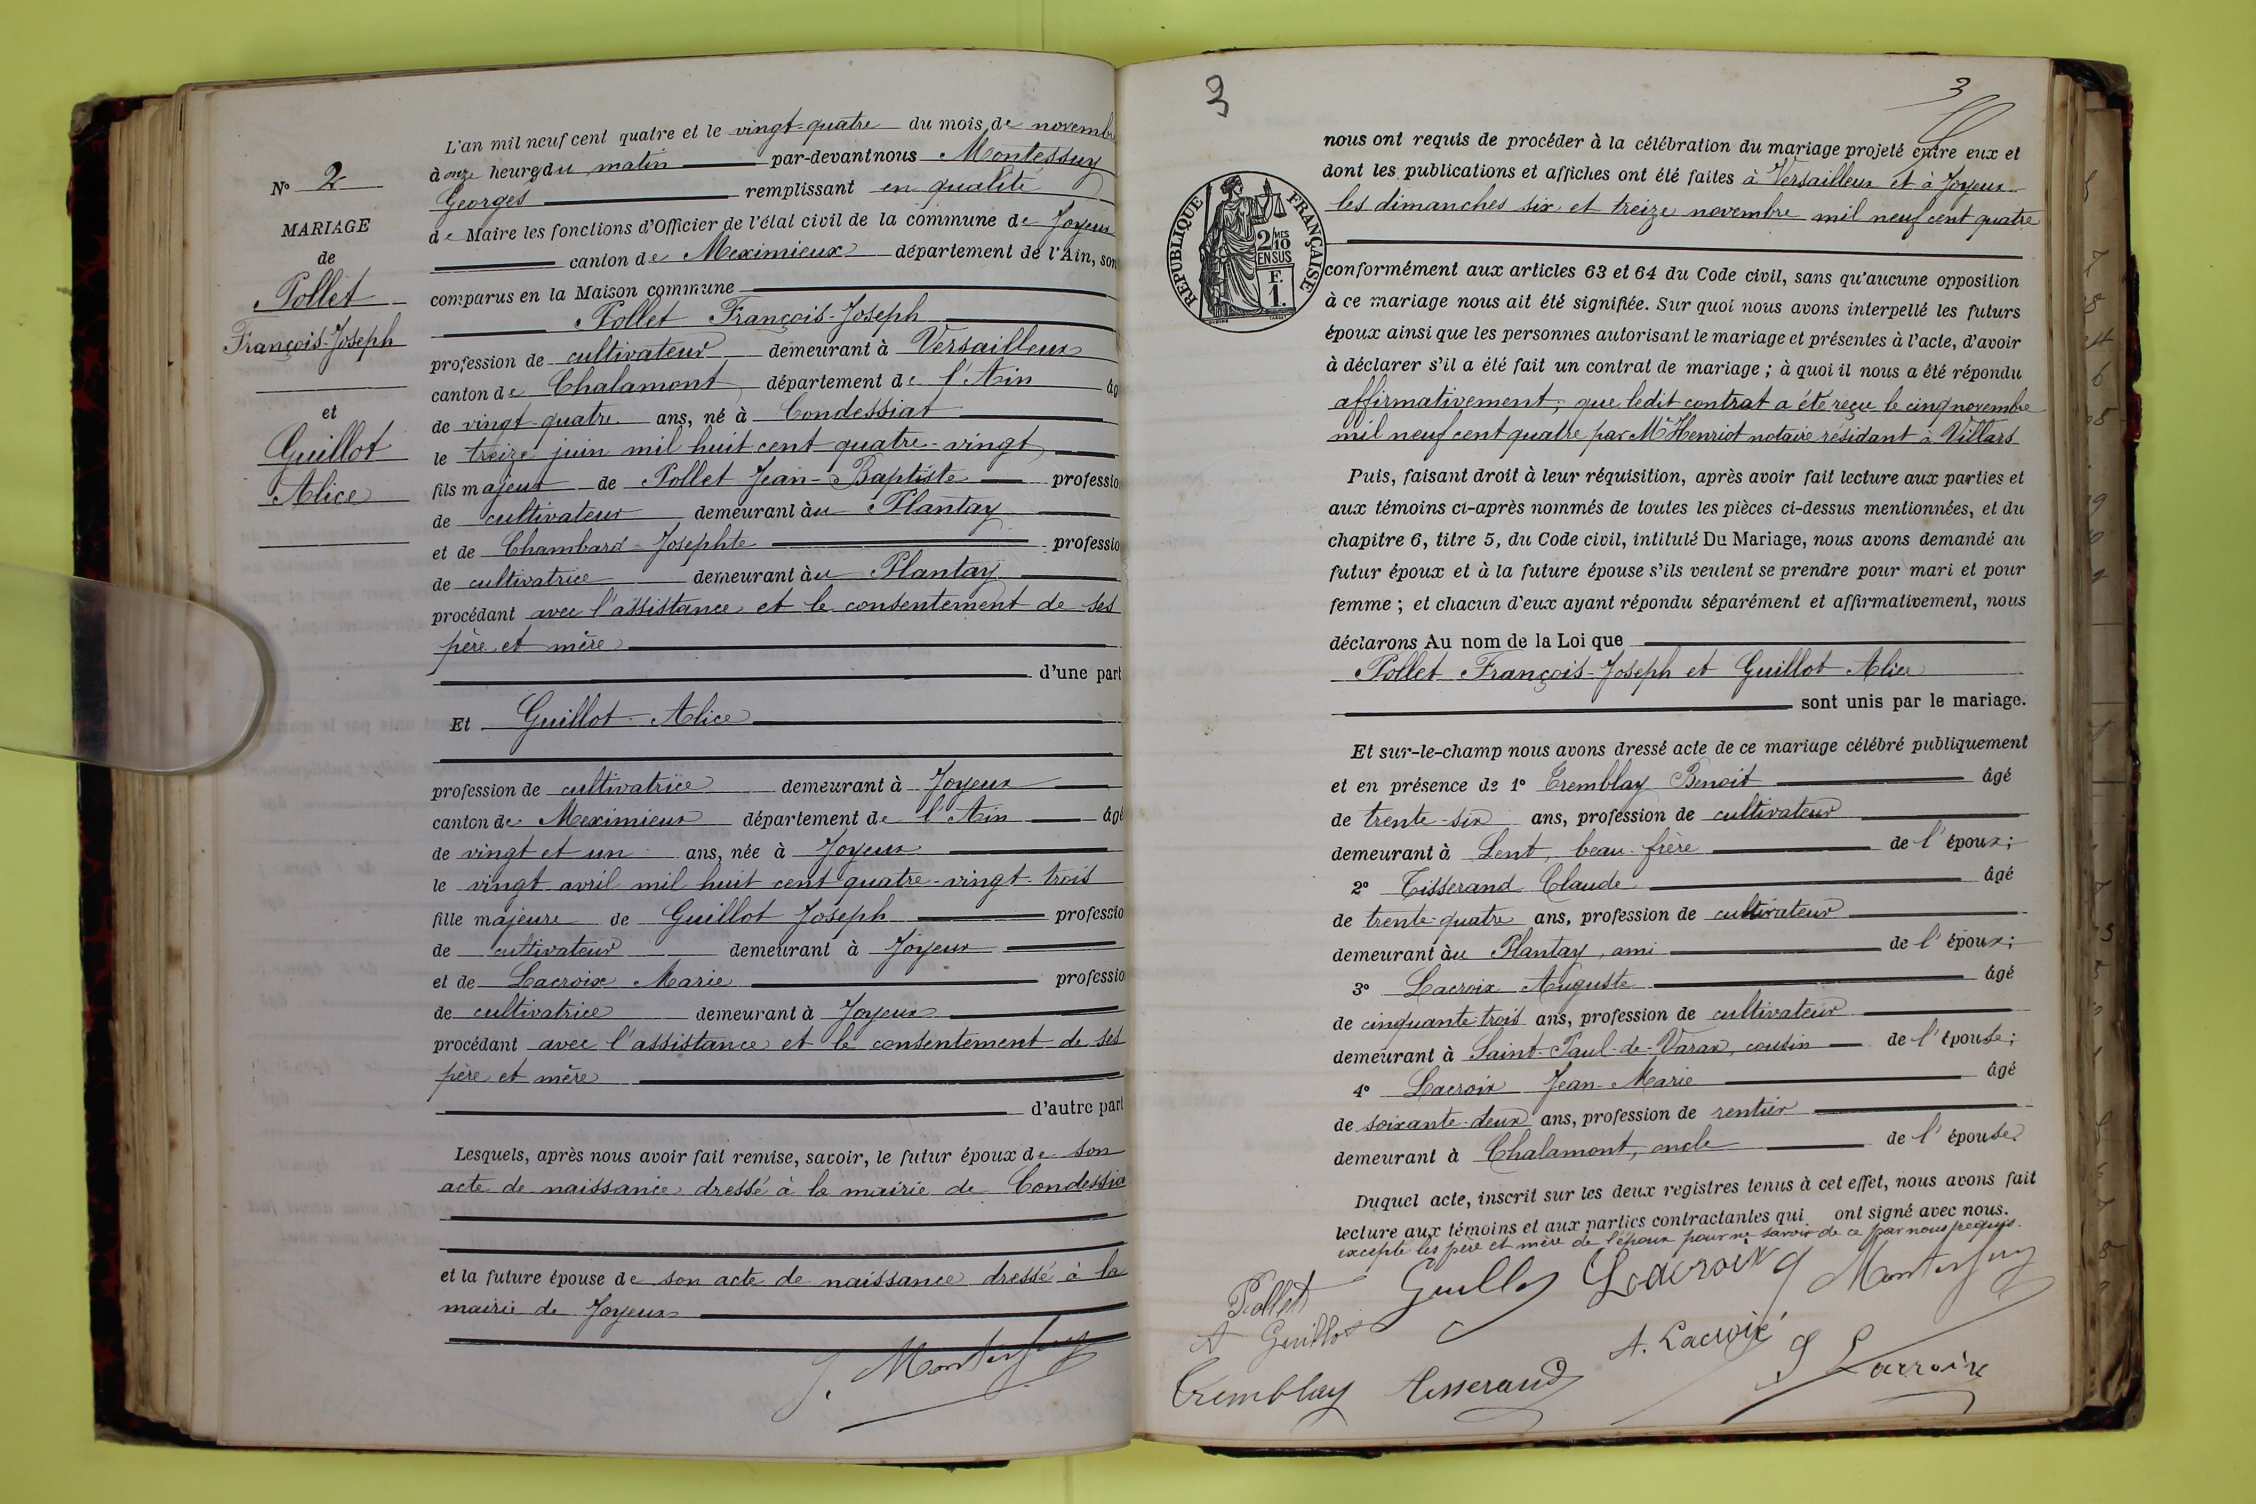 N° 2
MARIAGE
de
Pollet
François-Joseph
et
Guillot
Alice
L'an mil neuf cent quatre et le vingt-quatre du mois de novembre
à onze heures du matin par-devant nous Montessuy
Georges remplissant en qualité
de Maire les fonctions d'Officier de l'état civil de la commune de Joyeux
canton de Meximieux département de l'Ain, son
comparus en la Maison commune
Pollet François-Joseph
profession de cultivateur demeurant à Versailleux
canton de Chalamont département de l'Ain âg
de vingt-quatre ans, né à Condessiat
le treize juin mil huit cent quatre-vingt
fils majeur de Pollet Jean-Baptiste professio
de cultivateur demeurant àu Plantay
et de Chambard Josephte professio
de cultivatrice demeurant àu Plantay
procédant avec l'assistance et le consentement de ses
père et mère
d'une part
Et Guillot Alice
profession de cultivatrice demeurant à Joyeux
canton de Meximieux département de l'Ain âgé
de vingt et un ans, née à Joyeux
le vingt avril mil huit cent quatre-vingt-trois
fille majeure de Guillot Joseph professio
de cultivateur demeurant à Joyeux
et de Lacroix Marie professio
de cultivatrice demeurant à Joyeux
procédant avec l'assistance et le consentement de ses
père et mère
d'autre part
Lesquels, après nous avoir fait remise, savoir, le futur époux de son
acte de naissance dressé à la mairie de Condessia
et la future épouse de son acte de naissance dressé à la
mairie de Joyeux
G. Montessuy
3
3
RÉPUBLIQUE FRANÇAISE
2 MES
10
EN SUS
F.
1.
nous ont requis de procéder à la célébration du mariage projeté entre eux et
dont les publications et affiches ont été faites à Versailleux et à Joyeux
les dimanches six et treize novembre mil neuf cent quatre
conformément aux articles 63 et 64 du Code civil, sans qu'aucune opposition
à ce mariage nous ait été signifiée. Sur quoi nous avons interpellé les futurs
époux ainsi que les personnes autorisant le mariage et présentes à l'acte, d'avoir
à déclarer s'il a été fait un contrat de mariage ; à quoi il nous a été répondu
affirmativement, que ledit contrat a été reçu le cinq novembre
mil neuf cent quatre par Me Henriot notaire résidant à Villars
Puis, faisant droit à leur réquisition, après avoir fait lecture aux parties et
aux témoins ci-après nommés de toutes les pièces ci-dessus mentionnées, et du
chapitre 6, titre 5, du Code civil, intitulé Du Mariage, nous avons demandé au
futur époux et à la future épouse s'ils veulent se prendre pour mari et pour
femme ; et chacun d'eux ayant répondu séparément et affirmativement, nous
déclarons Au nom de la Loi que
Pollet François-Joseph et Guillot Alice
sont unis par le mariage.
Et sur-le-champ nous avons dressé acte de ce mariage célébré publiquement
et en présence de 1° Tremblay Benoit âgé
de trente-six ans, profession de cultivateur
demeurant à Lent, beau-frère de l'époux;
2° Tisserand Claude âgé
de trente-quatre ans, profession de cultivateur
demeurant àu Plantay, ami de l'époux;
3° Lacroix Auguste âgé
de cinquante-trois ans, profession de cultivateur
demeurant à Saint-Paul-de-Varax, cousin de l'épouse;
4° Lacroix Jean-Marie âgé
de soixante-deux ans, profession de rentier
demeurant à Chalamont, oncle de l'épouse.
Duquel acte, inscrit sur les deux registres tenus à cet effet, nous avons fait
lecture aux témoins et aux parties contractantes qui ont signé avec nous.
excepté les père et mère de l'époux pour ne savoir de ce par nous requis.
Pollet Guillot Lacroix G Montessuy
A Guillot
Tremblay Tisserand A. Lacroix J Lacroix